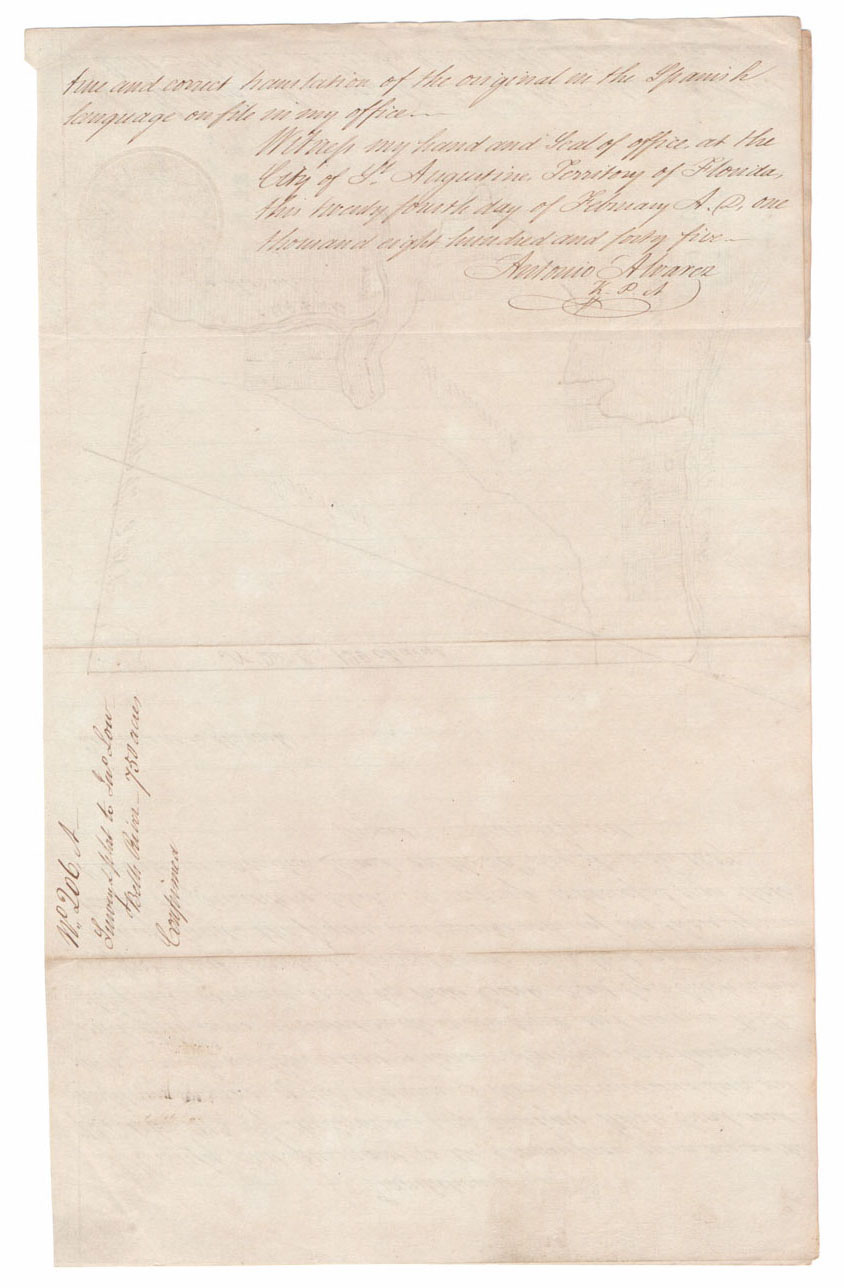 true and correct translation of the original in the Spanish
language on file in my office—
Witness my hand and Seal of office, at the
City of St. Augustine, Territory of Florida,
this twenty fourth day of February A.D. one
thousand eight hundred and forty five—
Antonio Alvarez
K. P. A
No. 206. A
Survey & plat to Jno Low
Bells River — 750 acres
Confirmed